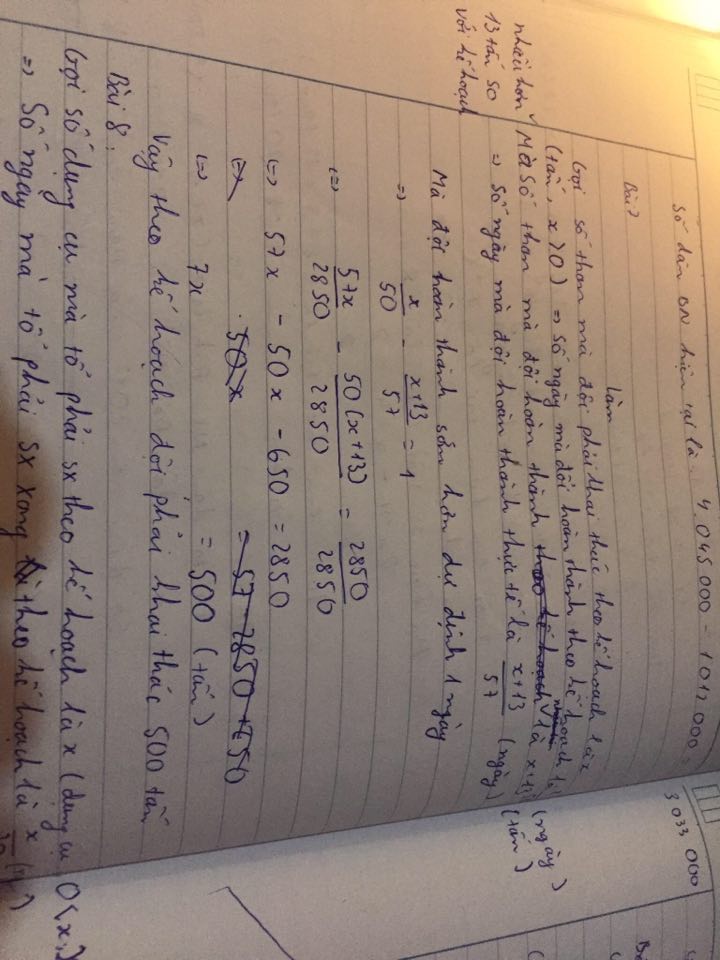 Số dân ĐN hiện tại là: 4.045 000 - 1012 000 =
3 033 000
Bài 7
Làm
Gọi số than mà đội phải khai thác theo kế hoạch là x
(tấn, x > 0) => Số ngày mà đội hoàn thành theo kế hoạch là
(ngày)
Mà Số than mà đội hoàn thành là x+13 (tấn)
nhiều hơn
13 tấn so
với kế hoạch
=> Số ngày mà đội hoàn thành thực tế là x+13/57 (ngày)
Mà đội hoàn thành sớm hơn dự định 1 ngày
=> x/50 - x+13/57 = 1
<=> 57x/2850 - 50(x+13)/2850 = 2850/2850
<=> 57x - 50x - 650 = 2850
<=> 50x = 57 - 2850 + 650
<=> 7x = 500 (tấn)
Vậy theo kế hoạch đội phải khai thác 500 tấn
Bài 8:
Gọi số dụng cụ mà tổ phải sx theo kế hoạch là x (dụng cụ
=> Số ngày mà tổ phải sx xong theo kế hoạch là x/30